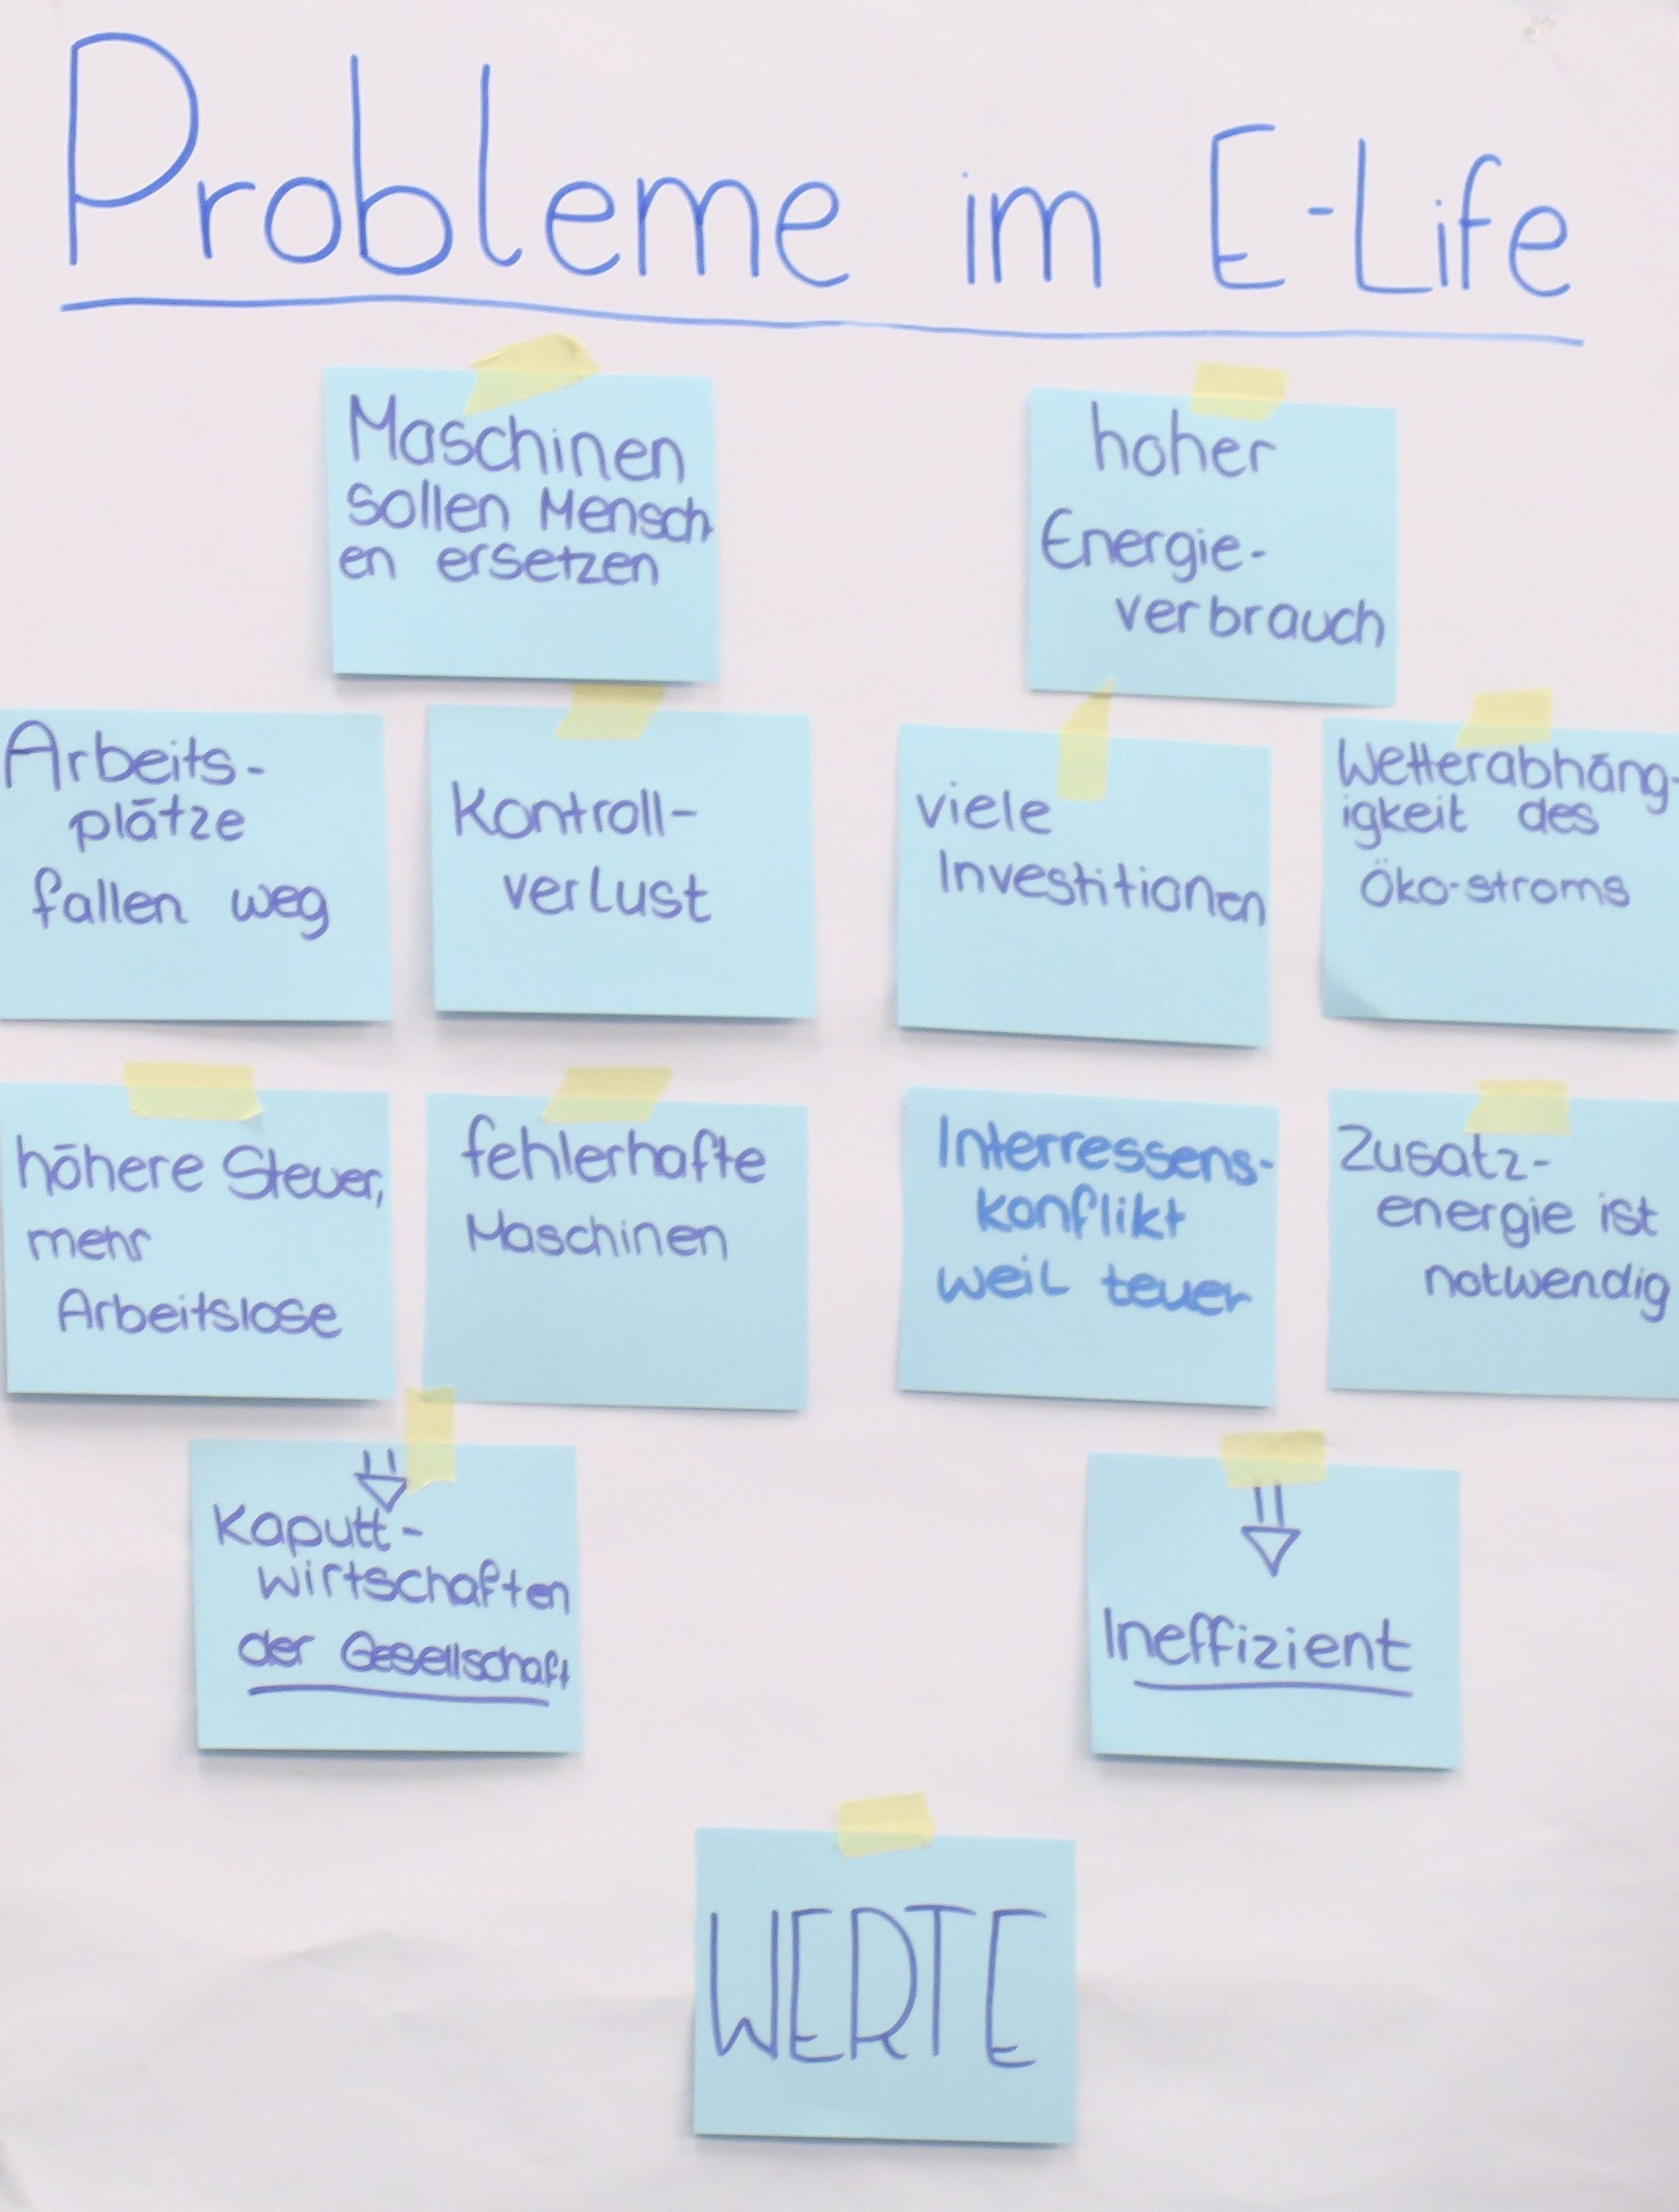 Probleme im E-Life
Maschinen
sollen Mensch
en ersetzen
hoher
Energie-
verbrauch
Arbeits-
plätze
fallen weg
Kontroll-
verlust
viele
Investitionen
Wetterabhäng-
igkeit des
Öko-stroms
höhere Steuer,
mehr
Arbeitslose
fehlerhafte
Maschinen
Interressens-
konflikt
weil teuer
Zusatz-
energie ist
notwendig
Kaputt-
wirtschaften
der Gesellschaft
Ineffizient
WERTE